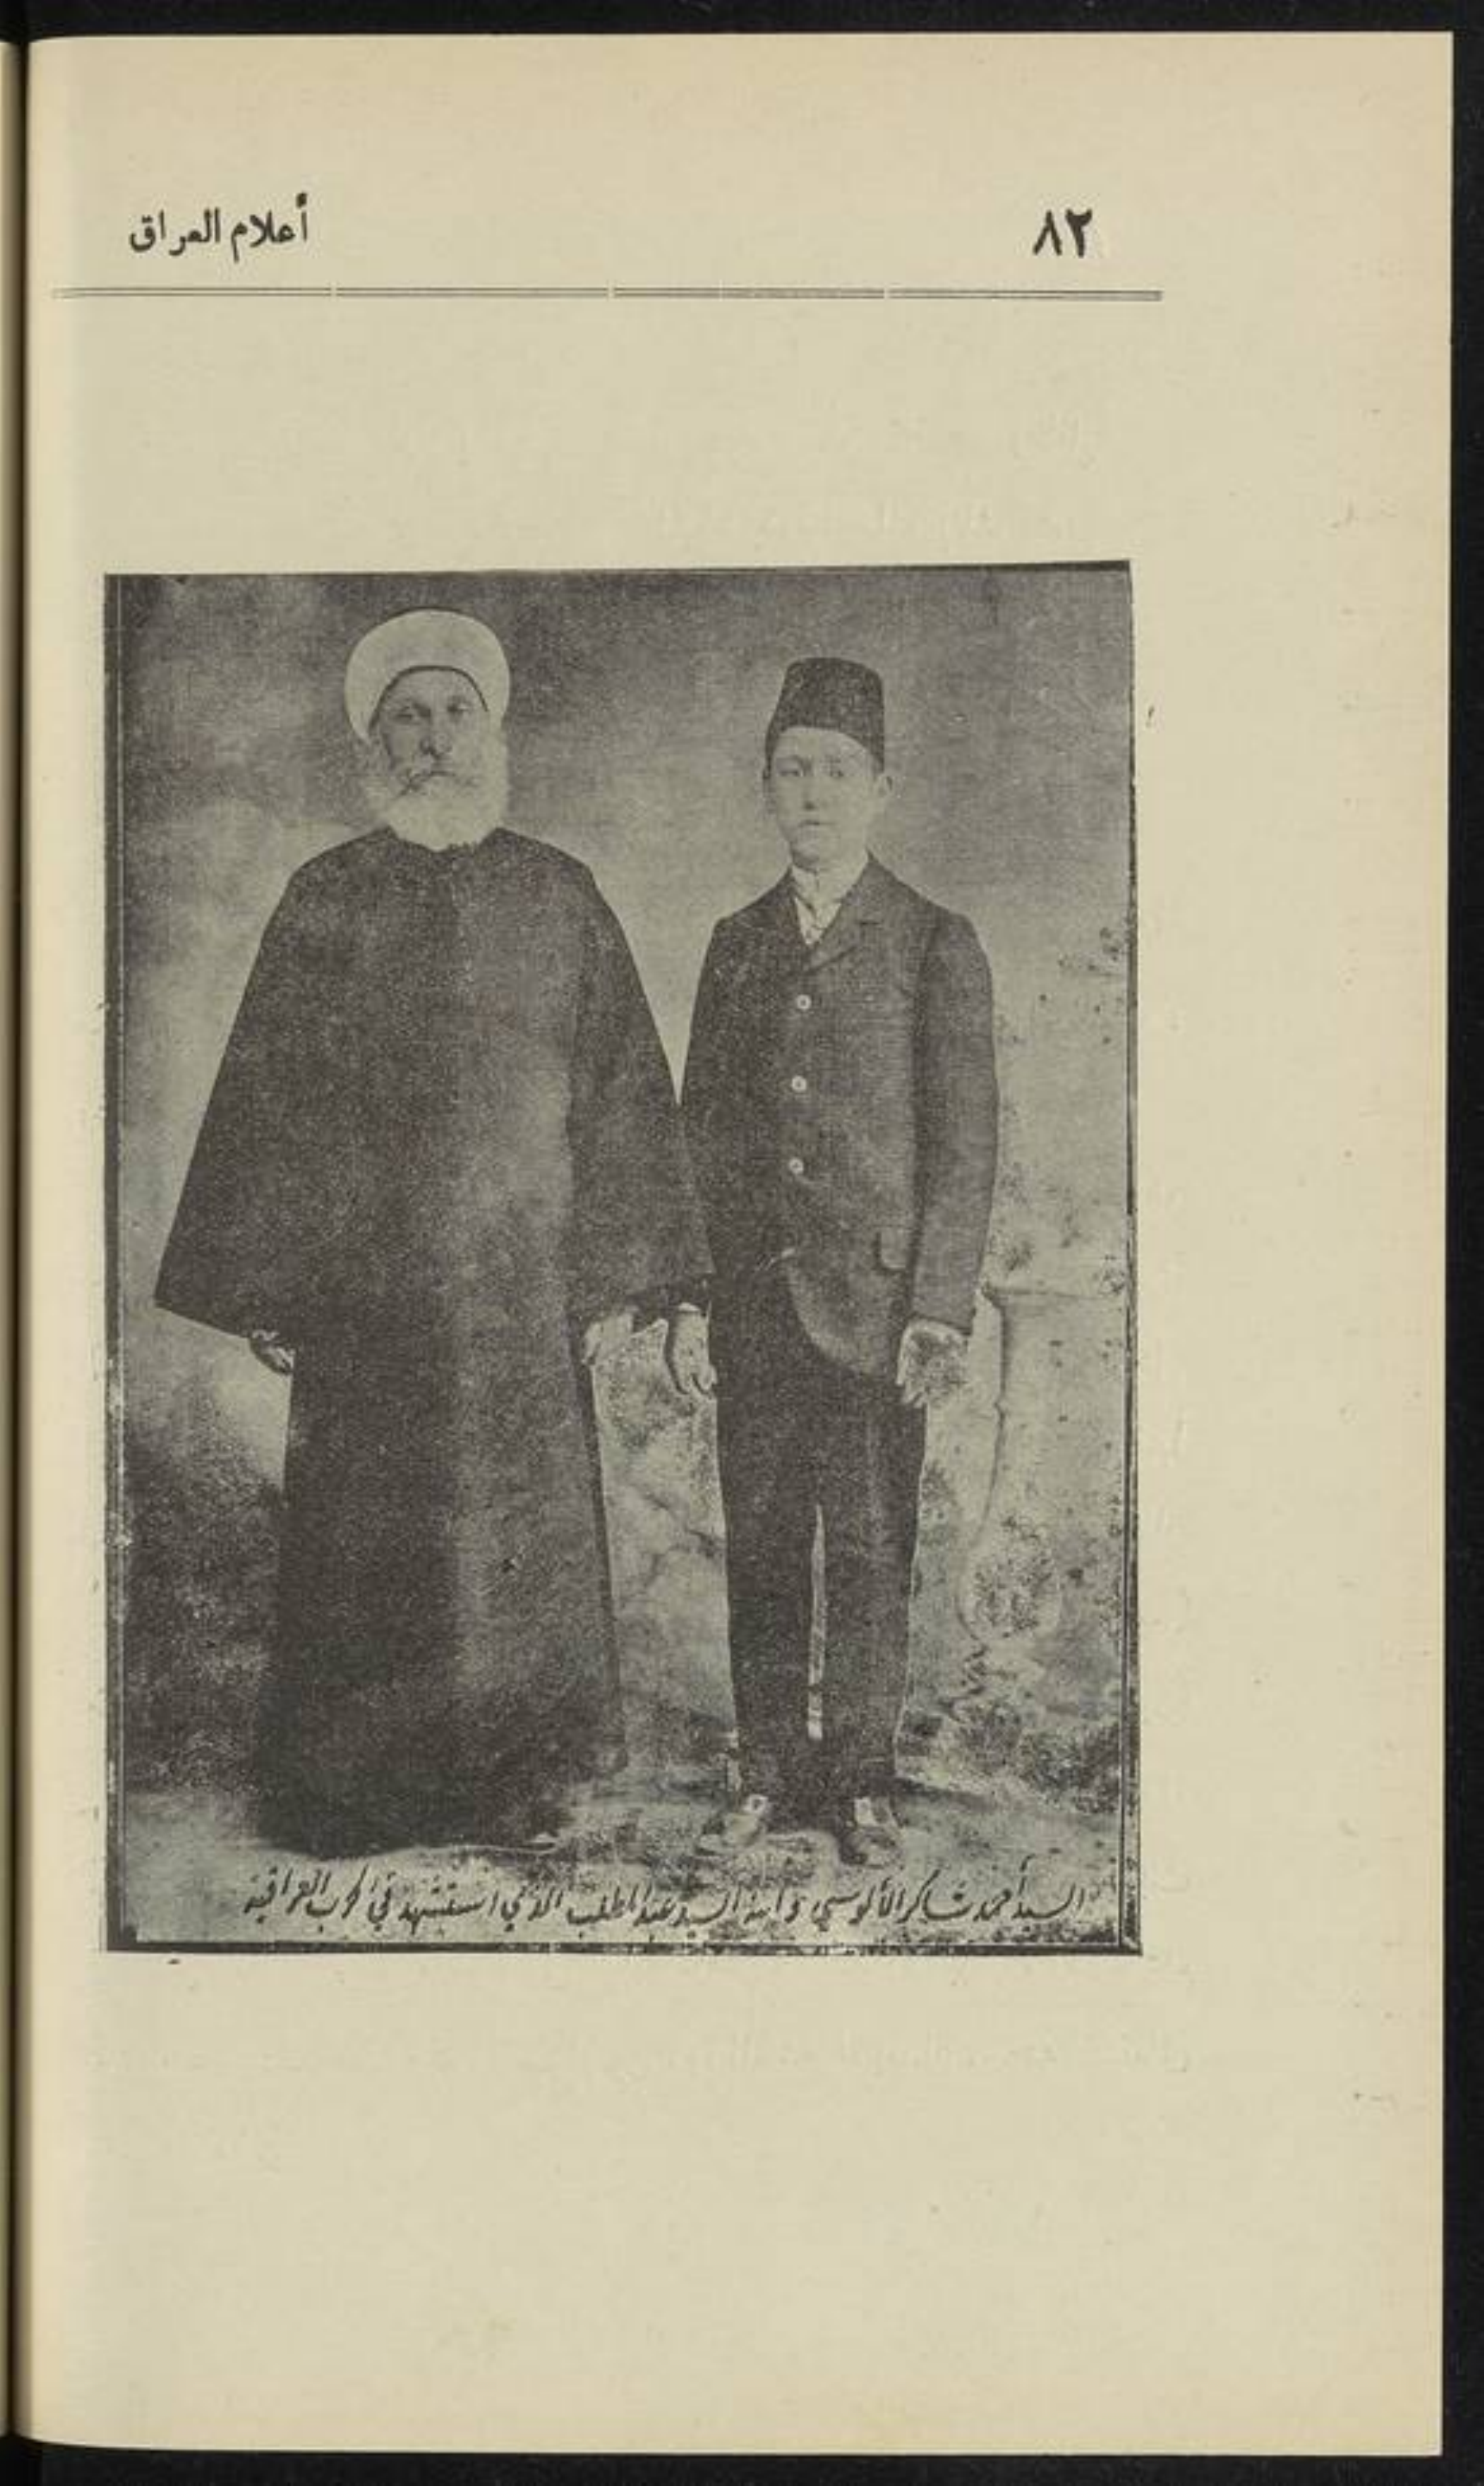 ٨٢
أعلام العراق
السيد أحمد شاكر الألوسي وابنه السيد عبد المطلب الذي استشهد في الحرب العراقية